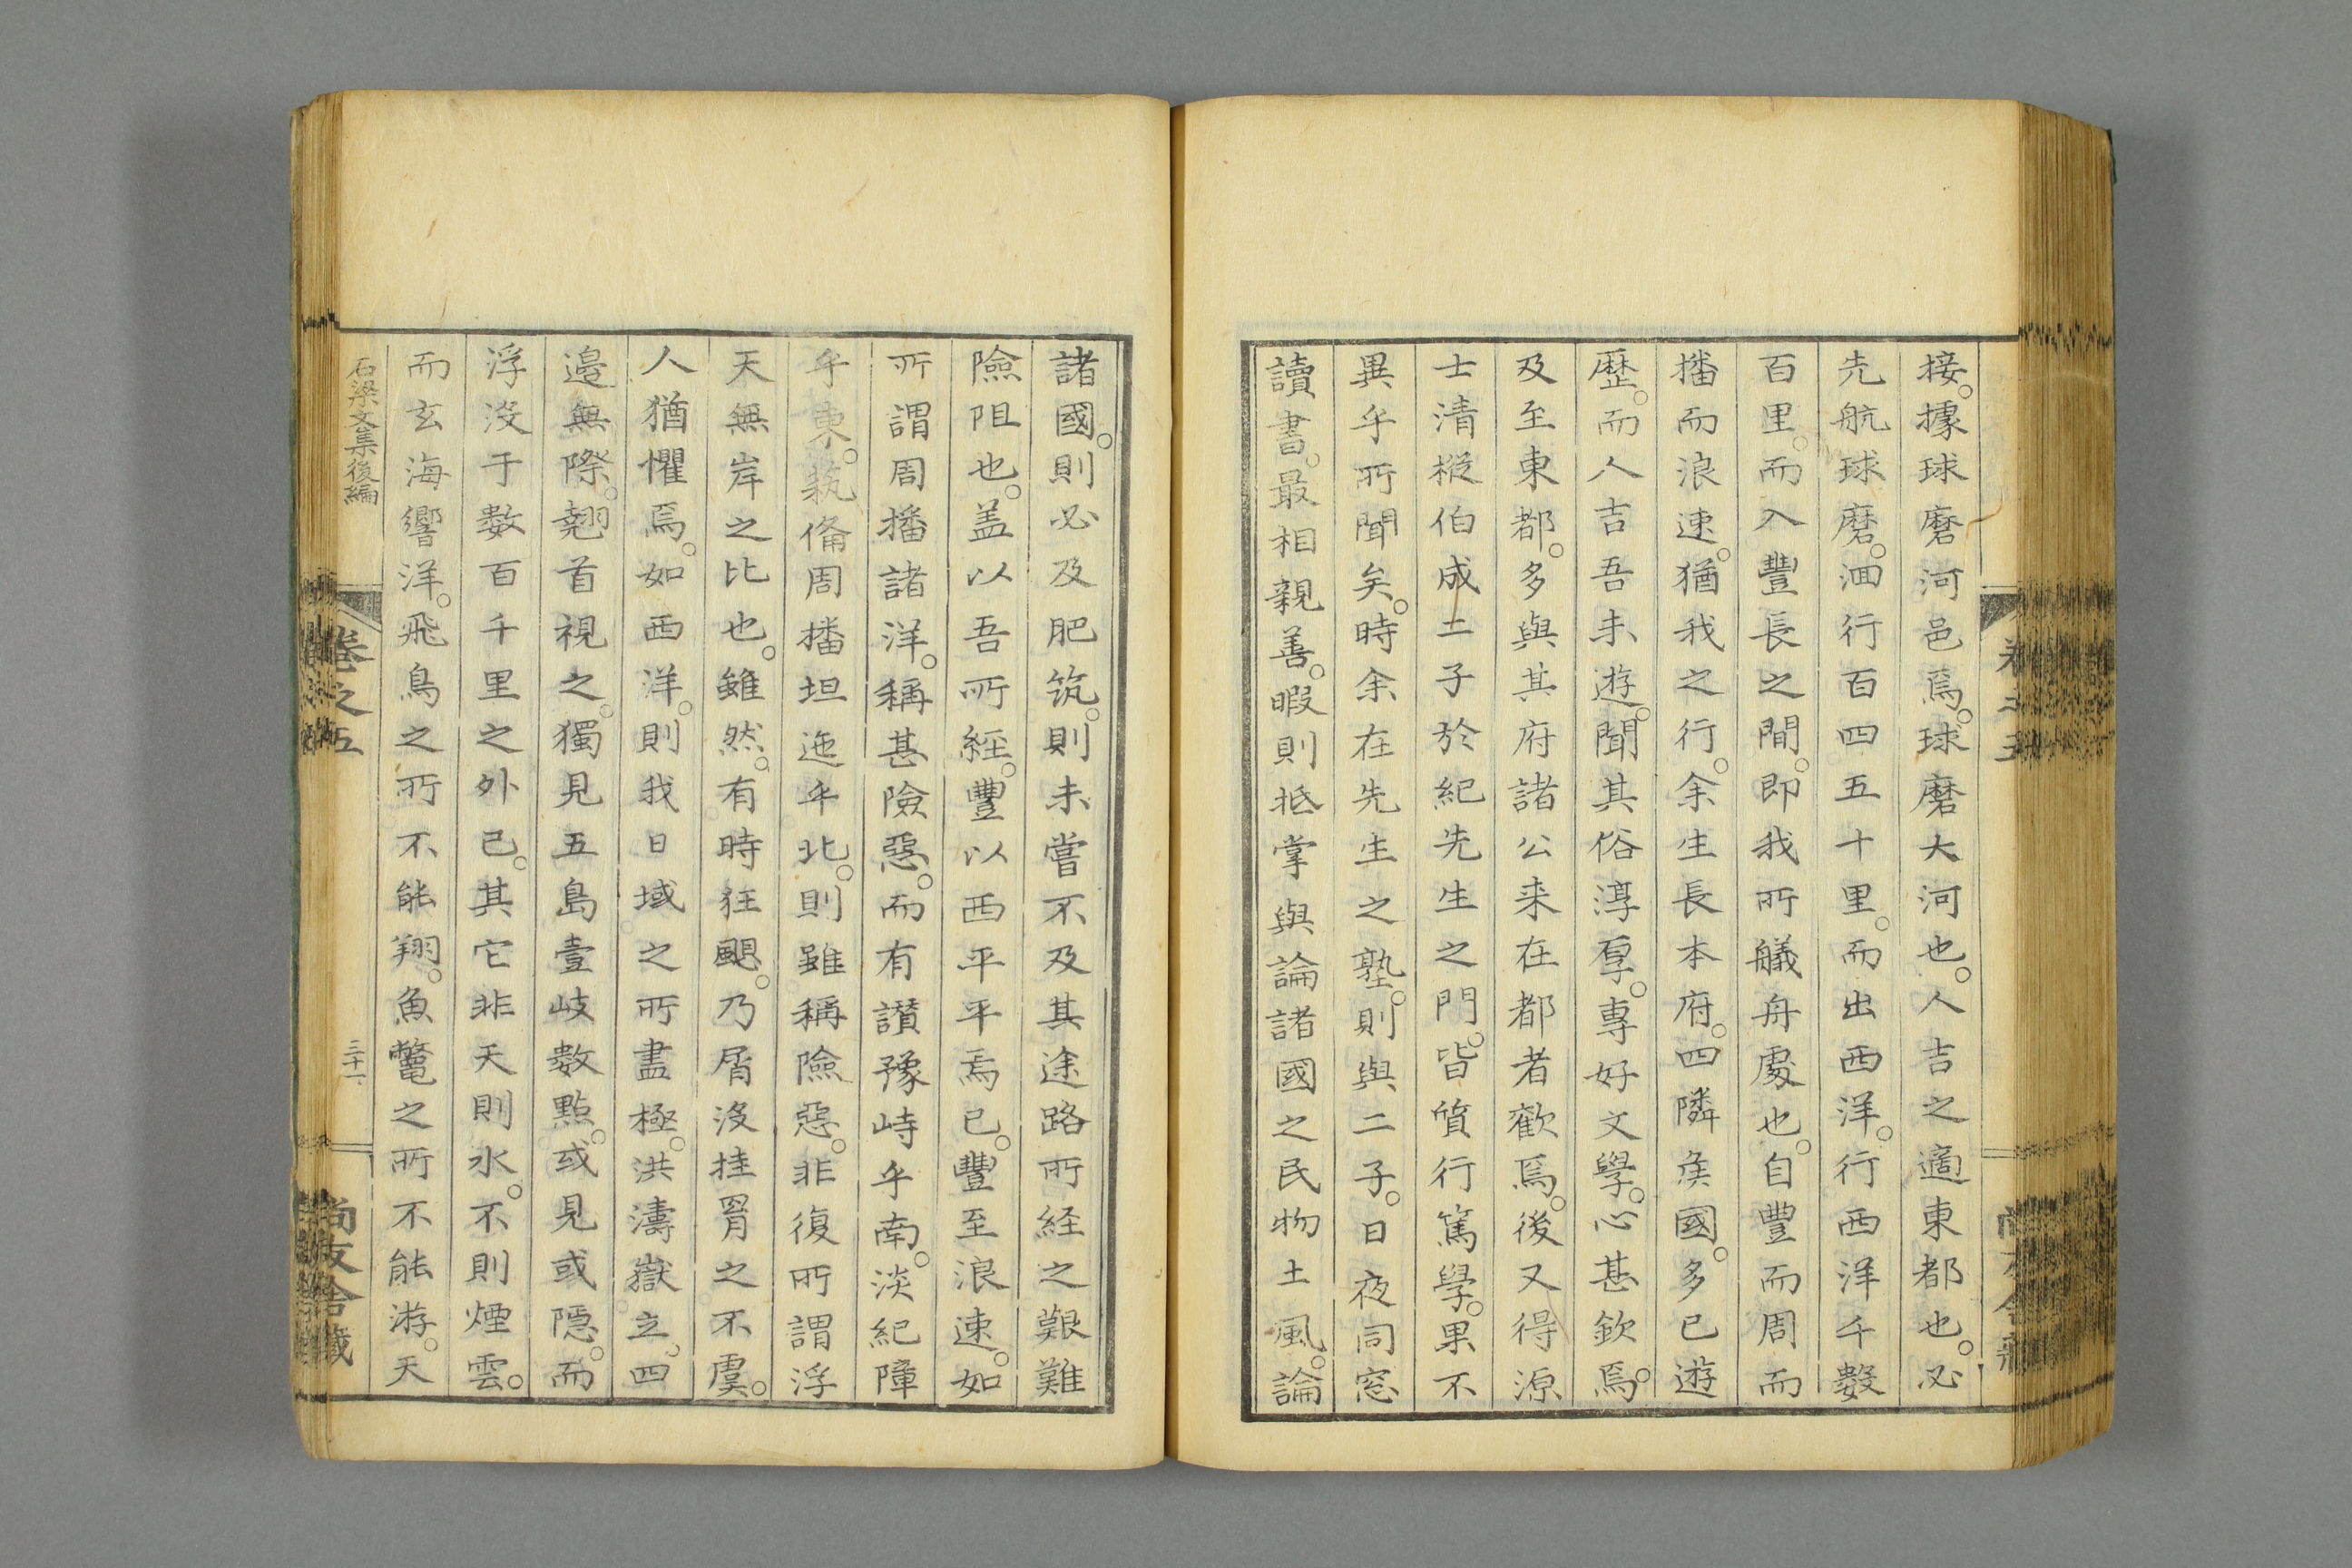 接。據球磨河邑焉。球磨大河也。人吉之適東都也。必
先航球磨。洄行百四五十里。而出西洋。行西洋千數
百里。而入豐長之間。即我所艤舟處也。自豐而周而
播而浪速。猶我之行。余生長本府。四隣矦國。多已遊
歷。而人吉吾未遊。聞其俗淳厚。專好文學。心甚欽焉。
及至東都。多與其府諸公来在都者歡焉。後又得源
士清樅伯成二子於紀先生之門。皆質行篤學。果不
異乎所聞矣。時余在先生之塾。則與二子。日夜同窓
讀書。最相親善。暇則抵掌與論諸國之民物土風。論
諸國。則必及肥筑。則未嘗不及其途路所経之艱難
險阻也。盖以吾所經。豐以西平平焉已。豐至浪速。如
所謂周播諸洋。稱甚險惡。而有讃豫峙乎南。淡紀障
乎東。藝備周播坦迤乎北。則雖稱險惡。非復所謂浮
天無岸之比也。雖然。有時狂颶。乃屑沒挂罥之不虞。
人猶懼焉。如西洋。則我日域之所盡極。洪濤嶽立。四
邉無際。翹首視之。獨見五島壹岐數點。或見或隱。而
浮沒于數百千里之外已。其它非天則水。不則煙雲。
而玄海響洋。飛鳥之所不能翔。魚鼈之所不能游。天
石梁文集後編
卷之五
三十一
尚友舍藏